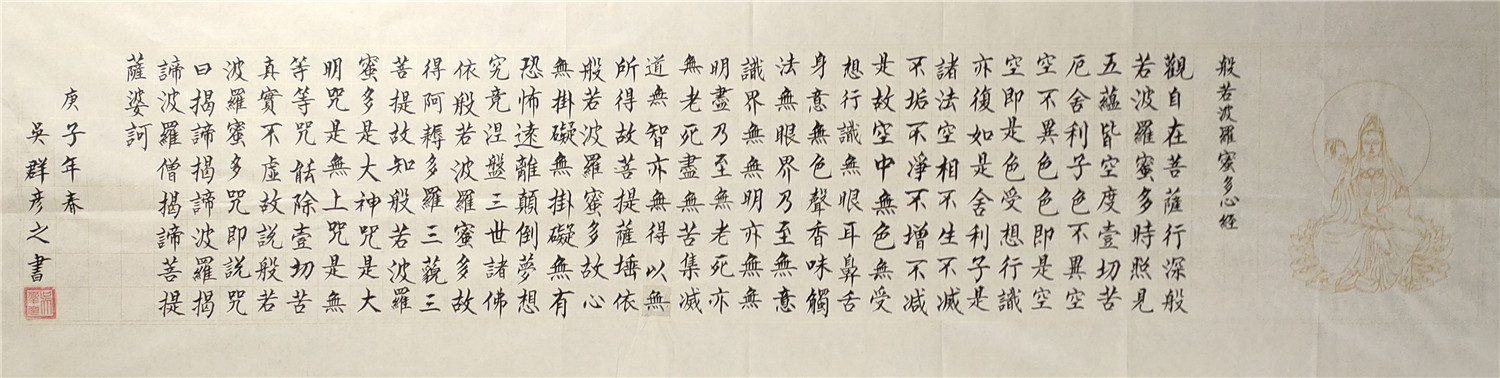 般若波羅蜜多心經
觀自在菩薩行深般
若波羅蜜多時照見
五蘊皆空度壹切苦
厄舍利子色不異空
空不異色色即是空
空即是色受想行識
亦復如是舍利子是
諸法空相不生不滅
不垢不淨不增不减
是故空中無色無受
想行識無眼耳鼻舌
身意無色聲香味觸
法無眼界乃至無意
識界無無明亦無無
明盡乃至無老死亦
無老死盡無苦集滅
道無智亦無得以無
所得故菩提薩埵依
般若波羅蜜多故心
無掛礙無掛礙無有
恐怖遠離顛倒夢想
究竟涅盤三世諸佛
依般若波羅蜜多故
得阿耨多羅三藐三
菩提故知般若波羅
蜜多是大神咒是大
明咒是無上咒是無
等等咒能除壹切苦
真實不虛故說般若
波羅蜜多咒即說咒
曰揭諦揭諦波羅揭
諦波羅僧揭諦菩提
薩婆訶
庚子年春
吳群彥之書